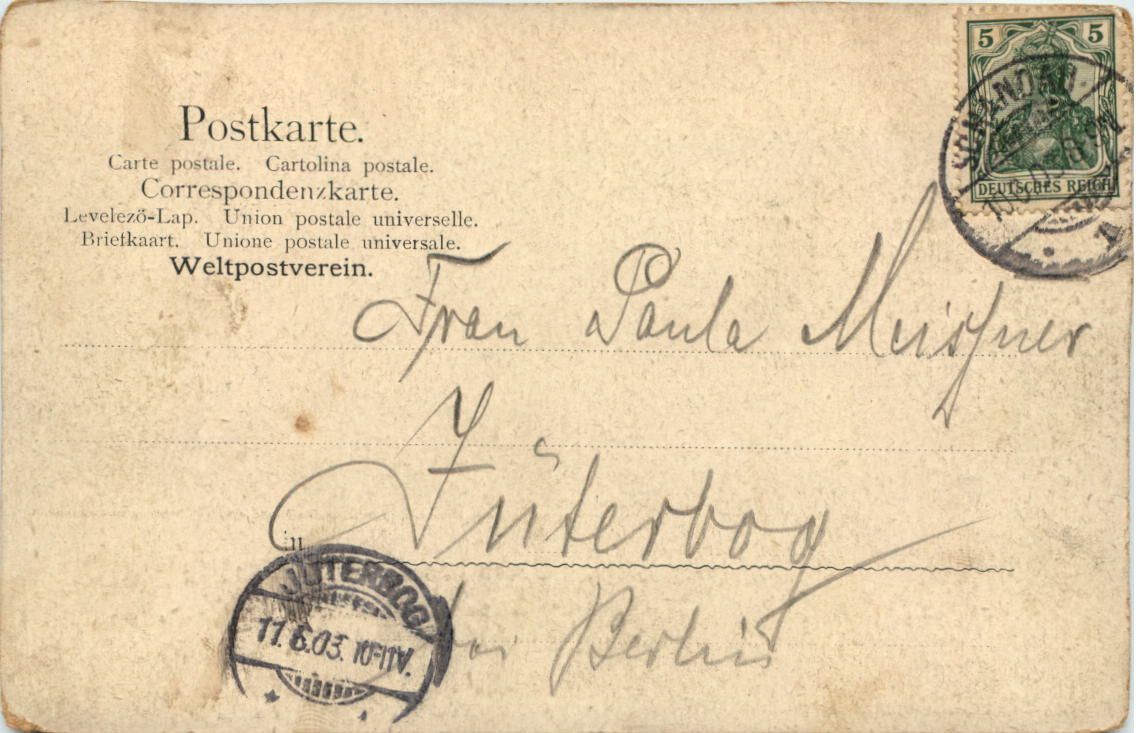 5 5
DEUTSCHES REICH
SCHANDAU
8-9N
Postkarte.
Carte postale. Cartolina postale.
Correspondenzkarte.
Levelező-Lap. Union postale universelle.
Briefkaart. Unione postale universale.
Weltpostverein.
Frau Paula Meissner
in
Jüterbog
bei Berlin
JÜTERBOG
11.6.03. 10-11V.